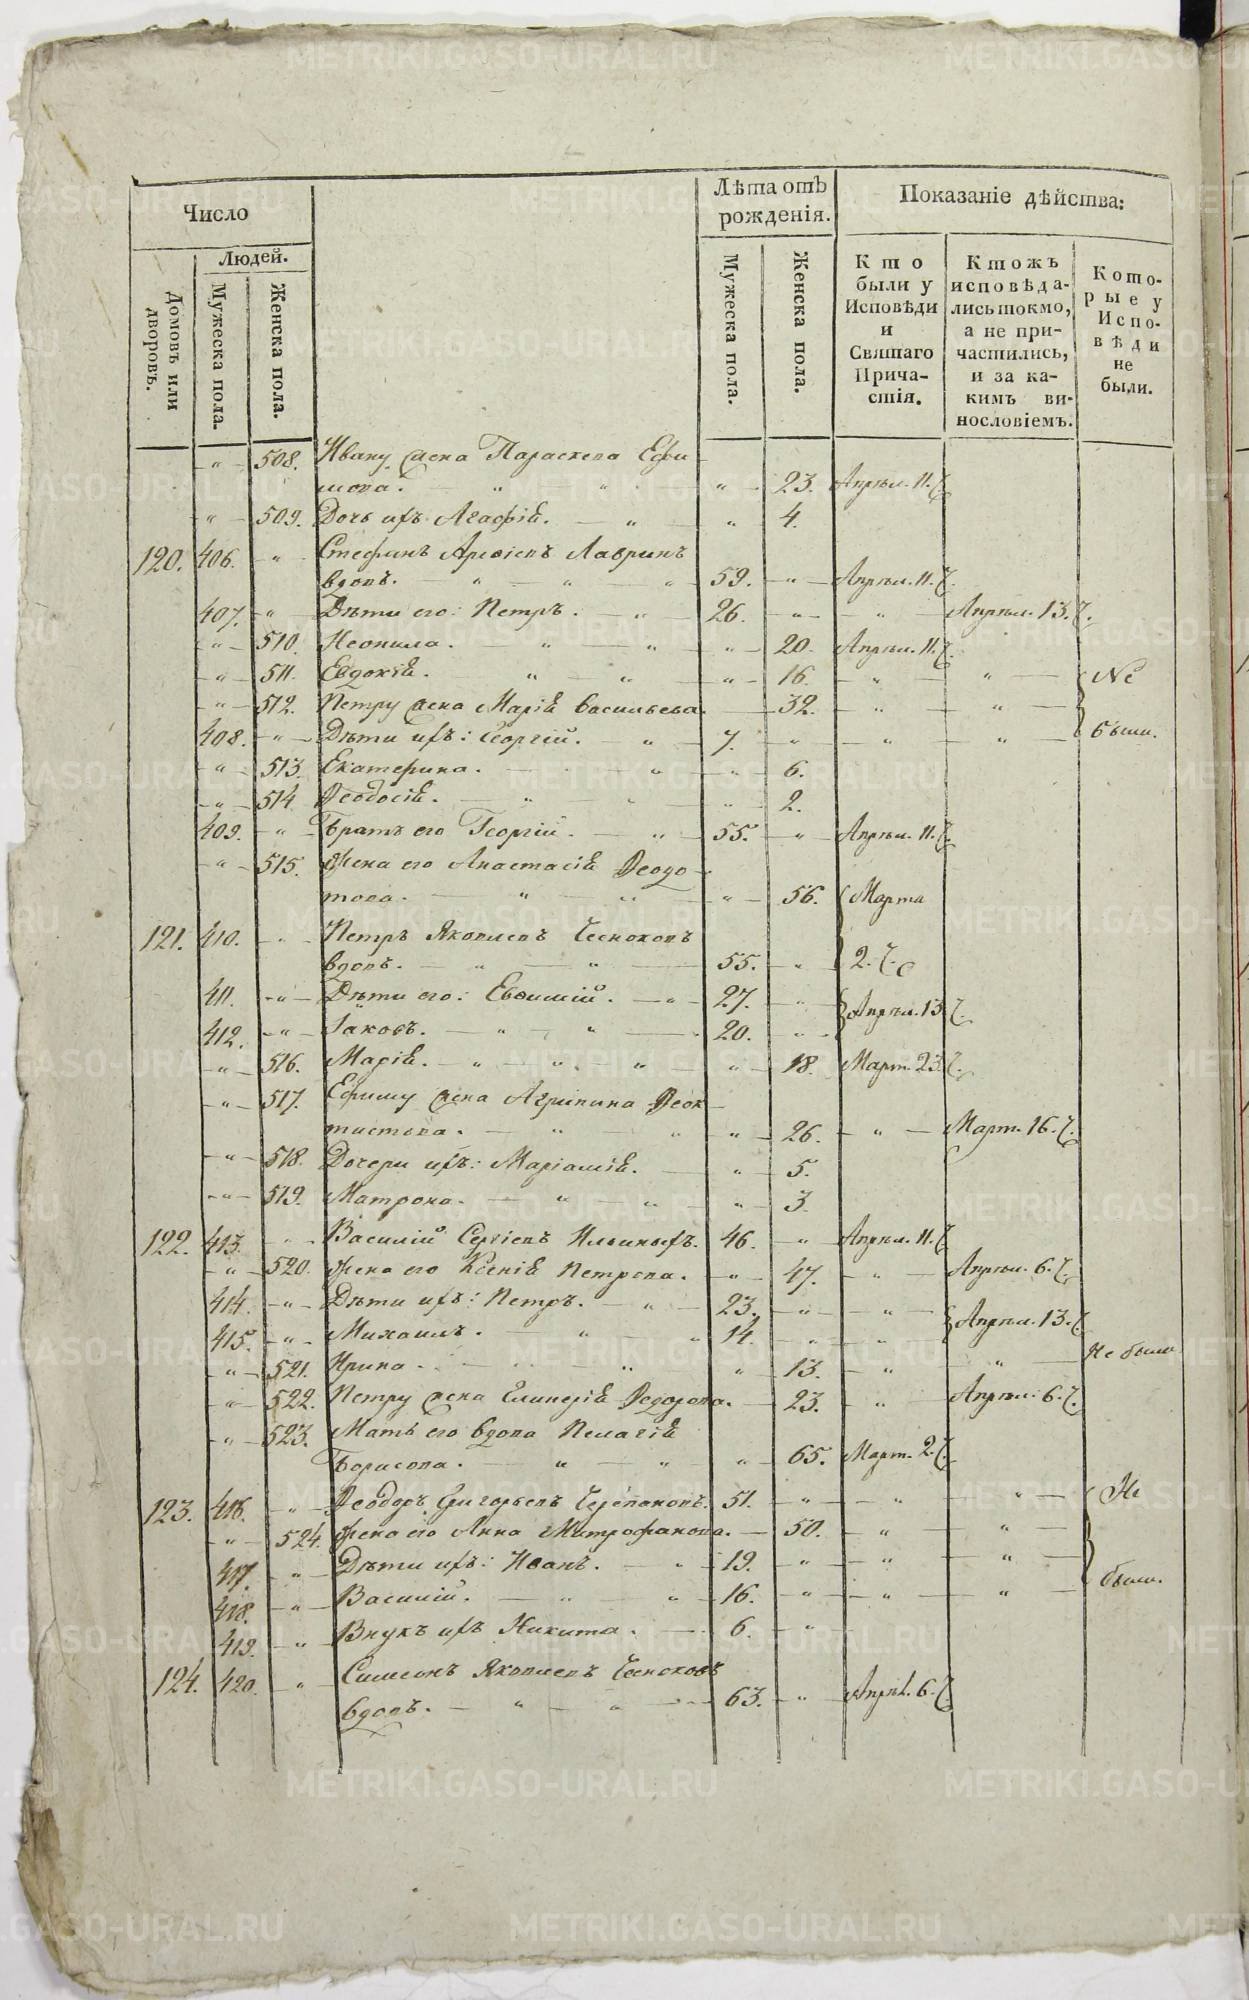 Число
Лѣта отъ рожденія.
Показаніе дѣйства:
Домовъ или дворовъ.
Людей.
Мужеска пола.
Женска пола.
Мужеска пола.
Женска пола.
Кто были у Исповѣди и Святаго Причастія.
Ктожъ исповѣдались токмо, а не причастились, и за какимъ винословіемъ.
Которые у Исповѣди не были.
" 508. Ивану жена Параскева Ефи
мова. " 23. Апрѣл. 11.
" 509. Дочь ихъ Агафія. " 4.
120. 406. " Стефанъ Лавринъ
вдовъ. 59. " Апрѣл. 11.
407. " Дѣти его: Петръ. 26. " " Апрѣл. 13.
" 510. Неонила. " 20. Апрѣл. 11.
" 511. Евдокія. " 16. " " Не
" 512. Петру жена Марія Васильева 32. " "
408. " Дѣти ихъ: Георгій. 7. " " " были.
" 513. Екатерина. " 6.
" 514 Ѳеодосія. " 2.
409. " Братъ его Георгій. 55. " Апрѣл. 11.
" 515. Жена его Анастасія Ѳеодо
това. " 56. Марта
121. 410. " Петръ Яковлевъ Чесноковъ
вдовъ. 55. " 2.
411. " Дѣти его: Евѳимій. 27. " Апрѣл. 13
412. " Іаковъ. 20. "
" 516. Марія. " 18. Март. 23.
" 517. Ефиму жена Агрипина Ѳеок
тистова. " 26. " Март. 16.
" 518. Дочери ихъ: Маріамія. " 5.
" 519. Матрона. " 3.
122. 413. " Василій Сергіевъ Ильиныхъ. 46. " Апрѣл. 11.
" 520. Жена его Ксенія Петрова. " 47. " Апрѣл. 6.
414. " Дѣти ихъ: Петръ. 23. " " Апрѣл. 13.
415. " Михаилъ. 14. " "
" 521. Ирина. " 13. " " Не были
" 522. Петру жена Ѳедорова. 23. " Апрѣл. 6.
" 523. Мать его вдова Пелагія
Борисова. " 65. Март. 2.
123. 416. " Ѳеодоръ Григорьевъ Черепановъ. 51. " " " Не
" 524. Жена его Анна Митрофанова. 50. " "
417. " Дѣти ихъ: Иванъ. 19. " " "
418. " Василій. 16. " " " были.
419. " Внукъ ихъ Никита. 6. "
124. 420. " Симеонъ Яковлевъ Чесноковъ
вдовъ. 63. " Апрѣл. 6.
METRIKI.GASO-URAL.RU